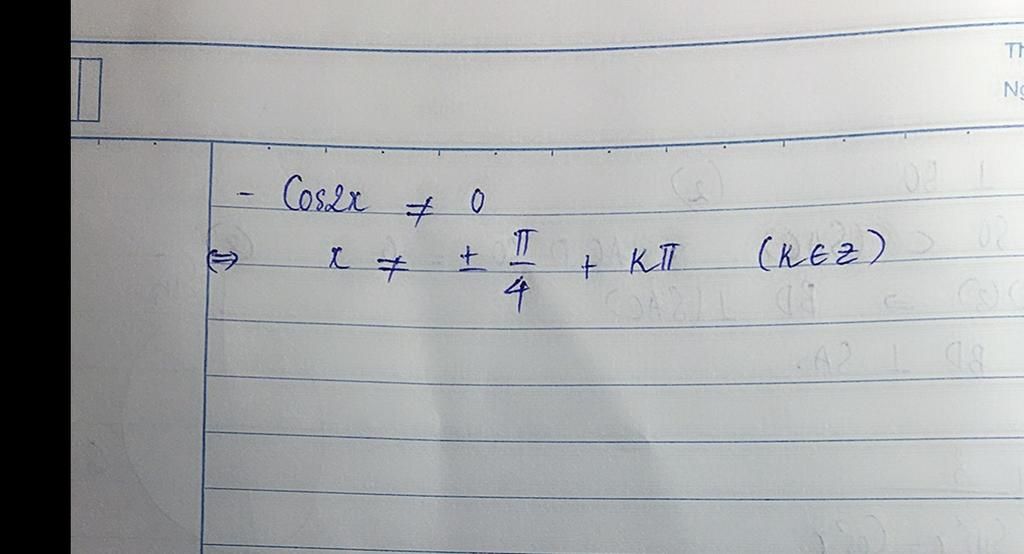 Th
Ng
- Cos2x ≠ 0
⇔ x ≠ ± π/4 + Kπ (K ∈ Z)